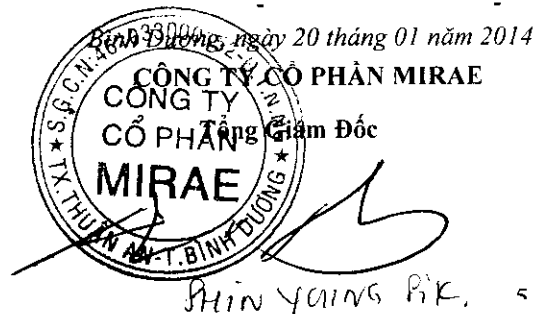 Bình Dương, ngày 20 tháng 01 năm 2014
CÔNG TY CỔ PHẦN MIRAE
Tổng Giám Đốc
CÔNG TY
CỔ PHẦN
MIRAE
TX.THUẬN AN-T.BÌNH DƯƠNG
SHIN YOUNG SIK.
5